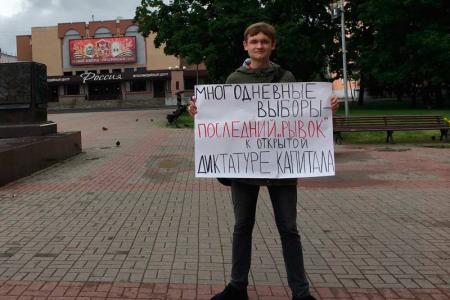 Россия
МНОГОДНЕВНЫЕ
ВЫБОРЫ-
ПОСЛЕДНИЙ „РЫВОК"
К ОТКРЫТОЙ
ДИКТАТУРЕ КАПИТАЛА